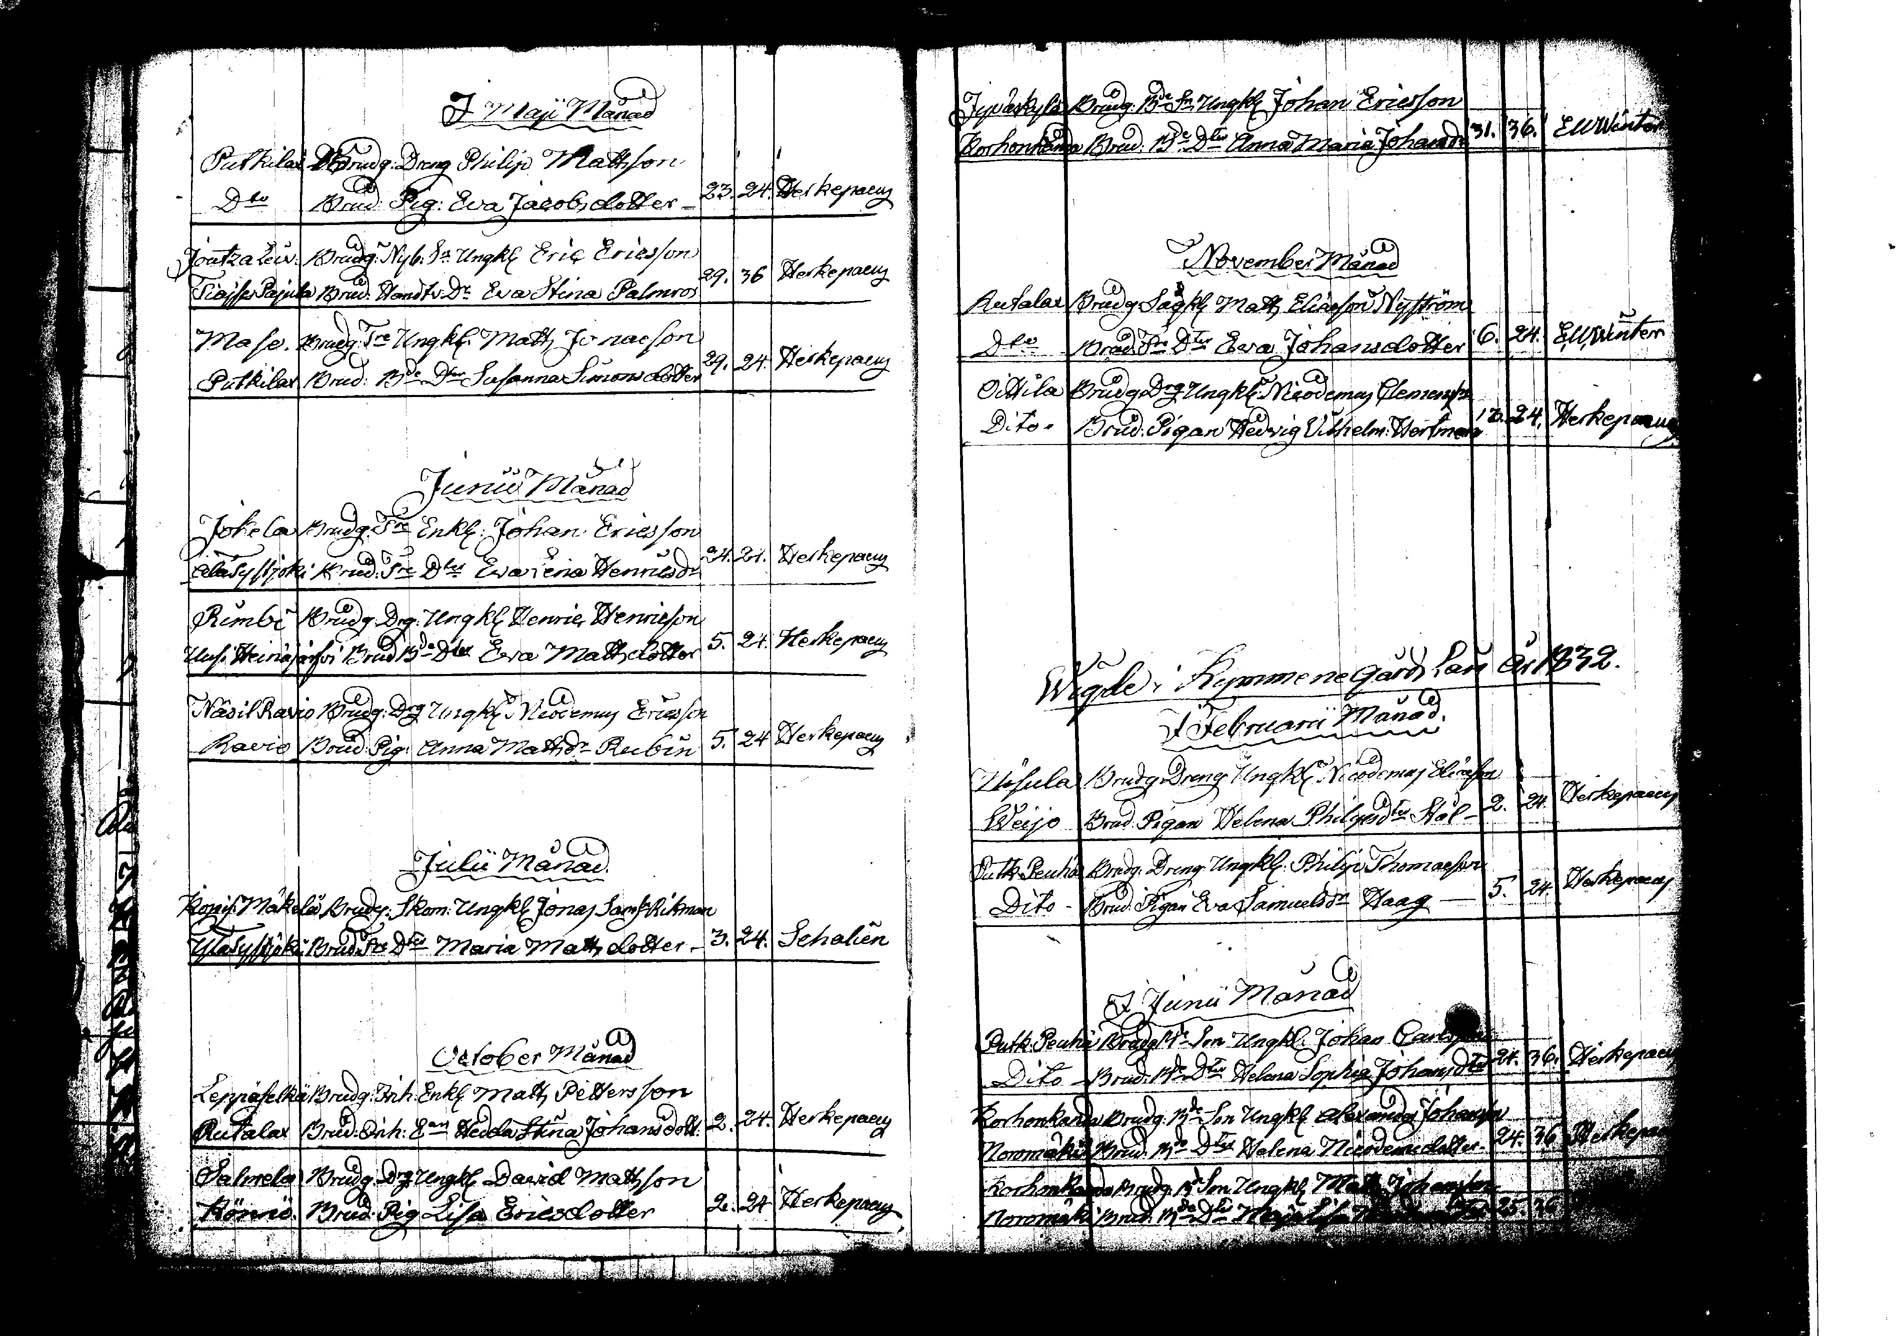 I Maji Månad
Putkilax Brudg: Dreng Philip Mattsson
Dto Brud: Pig: Eva Jacobsdotter 23. 24. Herkepaeus
Brudg: Nyb: Sn Ungkl Eric Ericsson
Brud: Handtv: Dr Eva Stina Palmros 29. 36 Herkepaeus
Brudg: Tre Ungkl: Matts Jonaeson
Putkilax Brud: Bde Dter Susanna Simonsdotter 29. 24. Herkepaeus
Junii Månad
Jokela Brudg: Tre Enkl: Johan Ericsson
Brud: Tre Dter Henricsdr 24. 24. Herkepaeus
Rimbi Brudg: Drg: Ungkl Henric Henricsson
Uusi Heinäjärfvi Brud Bde Dter Eva Mattsdotter 5. 24. Herkepaeus
Ravio Brudg: Drg Ungkl Nicodemus Ericsson
Ravio Brud: Pig: Anna Mattsdr Rubin 5. 24 Herkepaeus
Julii Månad
Mäkelä Brudg: Skom: Ungkl Jonas Rikman
Brud: Tre Dter Maria Mattsdotter 3. 24. Schalien
October Månad
Leppäselkä Brudg: Inh: Enkl Matts Pettersson
Rutalax Brud: Inh: Hedda Stina Johansdott: 2. 24. Herkepaeus
Salmela Brudg: Drg Ungkl David Mattsson
Könnö. Brud: Pig Lisa Ericsdotter 2. 24 Herkepaeus
Jyväskylä Brudg: Bde Sn Ungkl Johan Ericsson
Korhonkanda Brud: Bde Dter Anna Maria Johansdr 31. 36. EWWinter
November Månad
Rutalax Brudg Matts Eliaeson Nyström
Dto Brud Tre Dter Eva Johansdotter 6. 24. EWWinter
Oittila Brudg Drg Ungkl: Nicodemus
Dito Brud: Pigan Hedvig Vilhelm: Hertman 24. Herkepaeus
Wigde i Kymmenegårds Län År 1832.
I Februarii Månad.
Brudg: Dreng Ungkl: Nicodemus
Weijo Brud Pigan Helena Philipsdter Stål 2. 24. Herkepaeus
Putk: Peuha Brudg: Dreng Ungkl: Philip Thomaeson
Dito Brud: Pigan Eva Samuelsdr Haag 5. 24. Herkepaeus
I Junii Månad
Putk: Peuha Brudg Bde Son Ungkl: Johan
Dito Brud: Bde Dter Helena Sophia Johansdter 24. 36. Herkepaeus
Korhonkanda Brudg: Bde Son Ungkl Alexander Johansson
Noromäki Brud: Bde Dter Helena Nicodemusdotter 24. 36 Herkepaeus
Korhonkanda Brudg: Bde Son Ungkl Matts Johansson
Noromäki Brud: Bde Dter Maja Lisa 25. 36